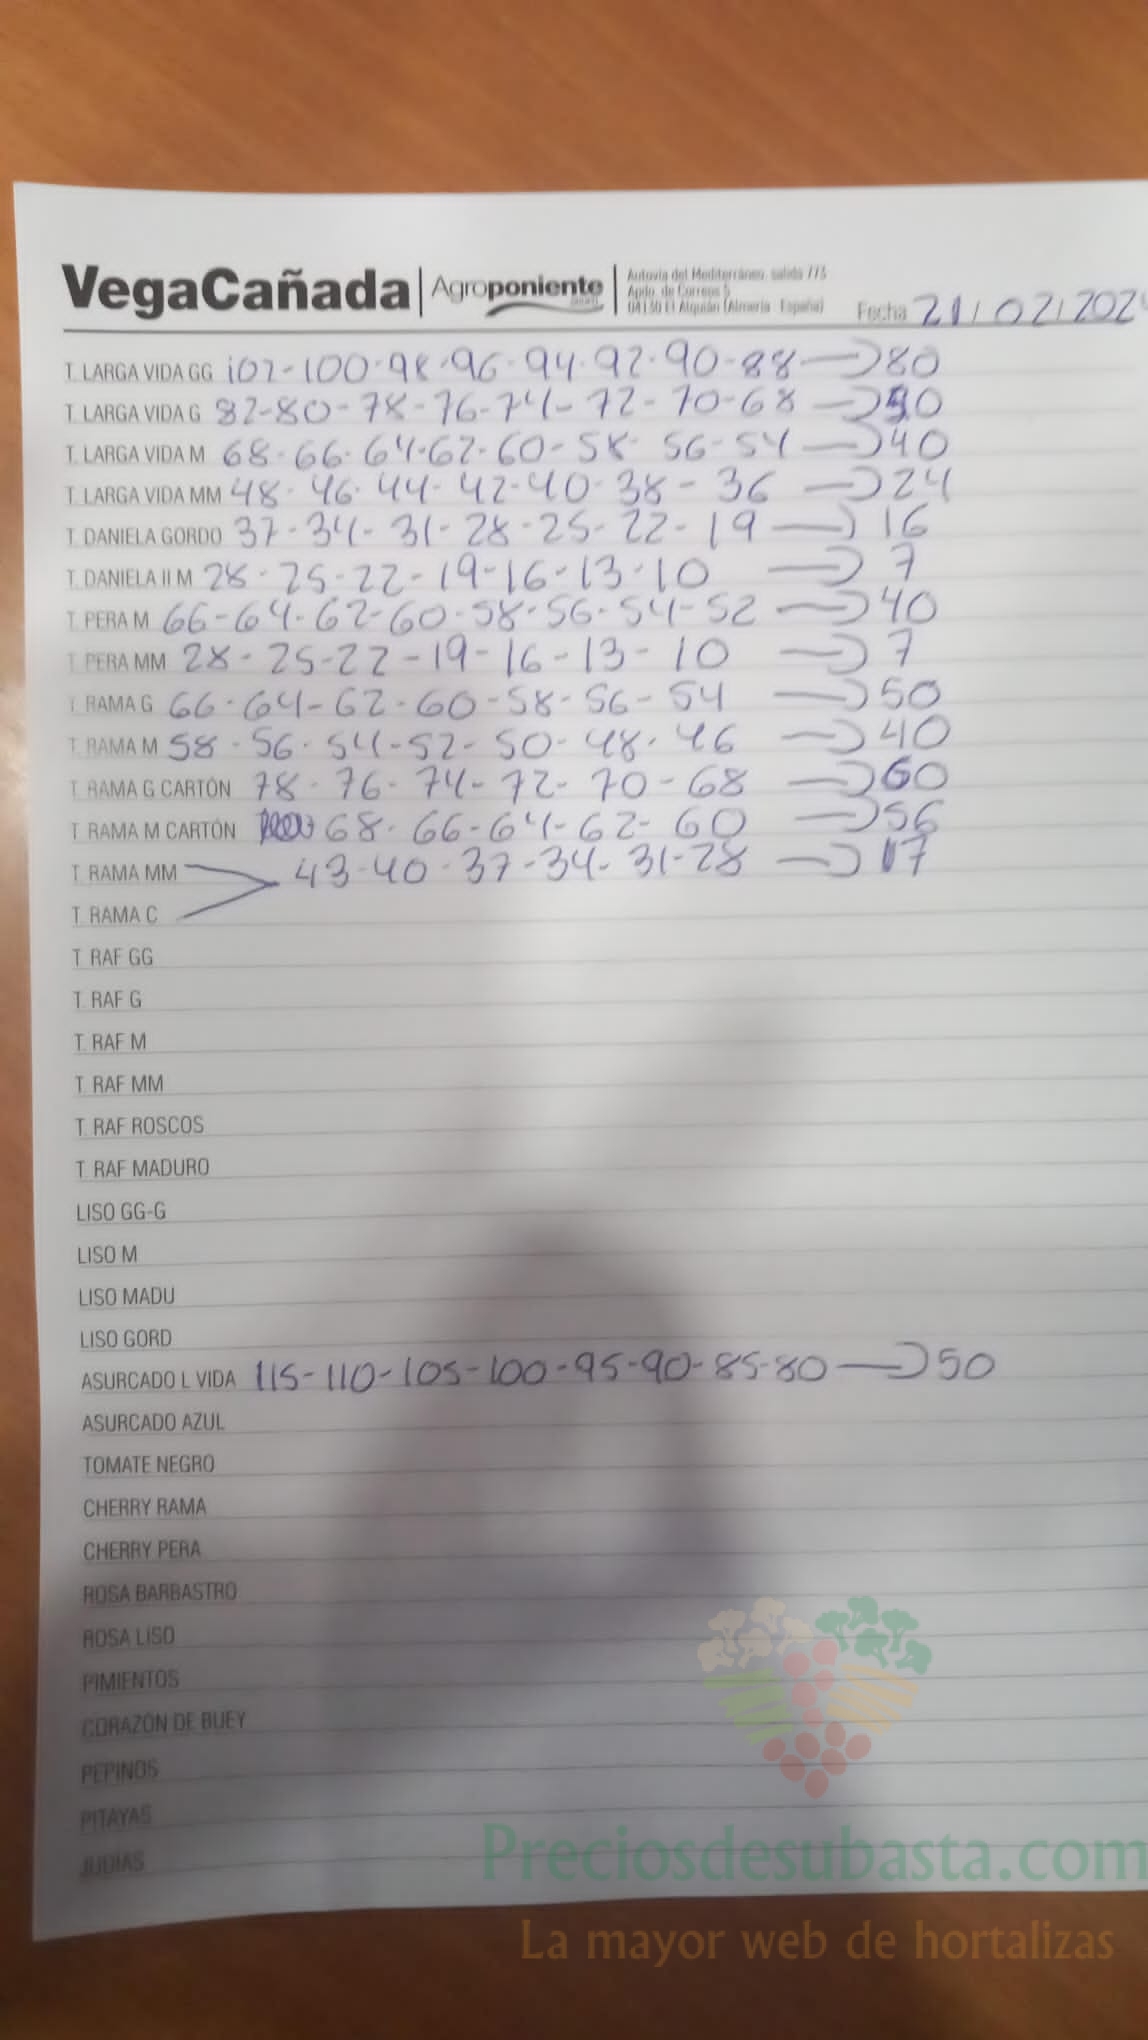 VegaCañada | Agroponiente
Autovía del Mediterráneo, salida 773
Apdo. de Correos 5
04130 El Alquián (Almería - España)
Fecha 21/02/2024
T. LARGA VIDA GG 102-100-98-96-94-92-90-88→80
T. LARGA VIDA G 82-80-78-76-74-72-70-68→
T. LARGA VIDA M 68-66-64-62-60-58-56-54→40
T. LARGA VIDA MM 48-46-44-42-40-38-36→24
T. DANIELA GORDO 37-34-31-28-25-22-19→16
T. DANIELA II M 28-25-22-19-16-13-10→7
T. PERA M 66-64-62-60-58-56-54-52→40
T. PERA MM 28-25-22-19-16-13-10→7
T. RAMA G 66-64-62-60-58-56-54→50
T. RAMA M 58-56-54-52-50-48-46→40
T. RAMA G CARTÓN 78-76-74-72-70-68→60
T. RAMA M CARTÓN 68-66-64-62-60→56
T. RAMA MM 43-40-37-34-31-28→17
T. RAMA C
T. RAF GG
T. RAF G
T. RAF M
T. RAF MM
T. RAF ROSCOS
T. RAF MADURO
LISO GG-G
LISO M
LISO MADU
LISO GORD
ASURCADO L VIDA 115-110-105-100-95-90-85-80→50
ASURCADO AZUL
TOMATE NEGRO
CHERRY RAMA
CHERRY PERA
ROSA BARBASTRO
ROSA LISO
PIMIENTOS
CORAZÓN DE BUEY
PEPINOS
PITAYAS
JUDIAS
Preciosdesubasta.com
La mayor web de hortalizas